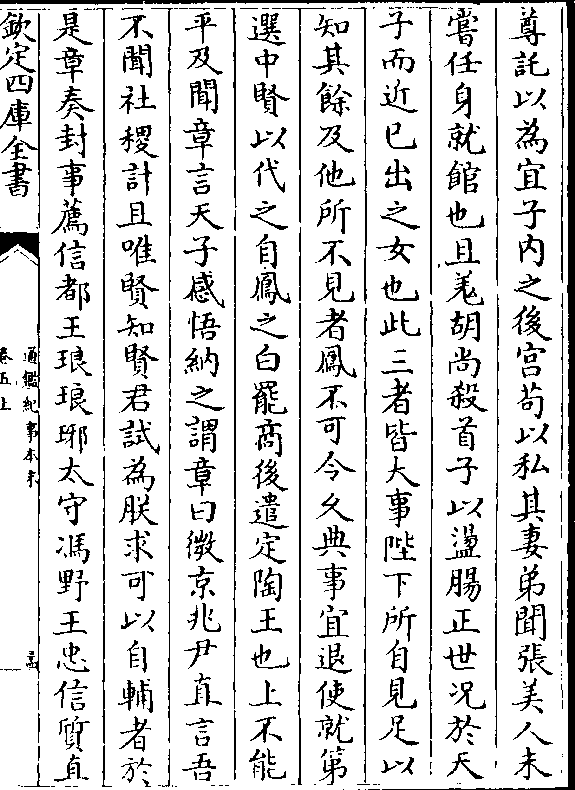 尊託以為宜子内之後宫苟以私其妻弟聞張美人未
嘗任身就館也且羗胡尚殺首子以盪腸正世况於天
子而近已出之女也此三者皆大事陛下所自見足以
知其餘及他所不見者鳳不可令久典事宜退使就第
選中賢以代之自鳳之白罷商後遣定陶王也上不能
平及聞章言天子感悟納之謂章曰微京兆尹直言吾
不聞社稷計且唯賢知賢君試為朕求可以自輔者於
是章奏封事薦信都王琅琅琊太守馮野王忠信質直
欽定四庫全書
通鑑紀事本末
卷五上